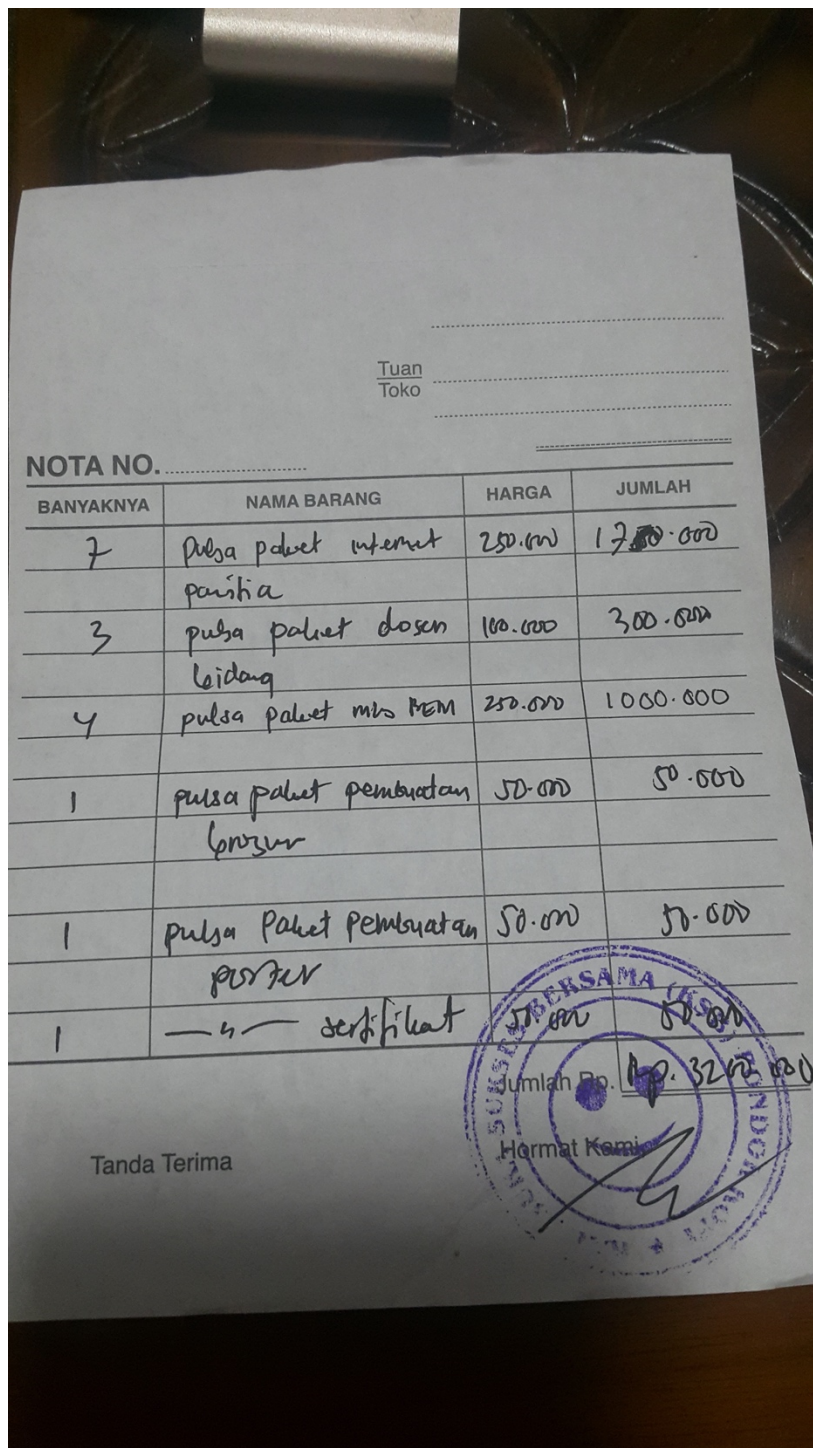 Tuan
Toko
NOTA NO.
BANYAKNYA NAMA BARANG HARGA JUMLAH
7 pulsa paket internet 250.000 1750.000
panitia
3 pulsa paket dosen 100.000 300.000
bidang
4 pulsa paket mhs BEM 250.000 1000.000
1 pulsa paket pembuatan 50.000 50.000
brosur
1 pulsa Paket pembuatan 50.000 50.000
poster
1 —〃— sertifikat 50.000 50.000
Jumlah Rp. Rp. 3200.000
Tanda Terima Hormat Kami
SUKSES BERSAMA (KSB) PONDOK KOPI